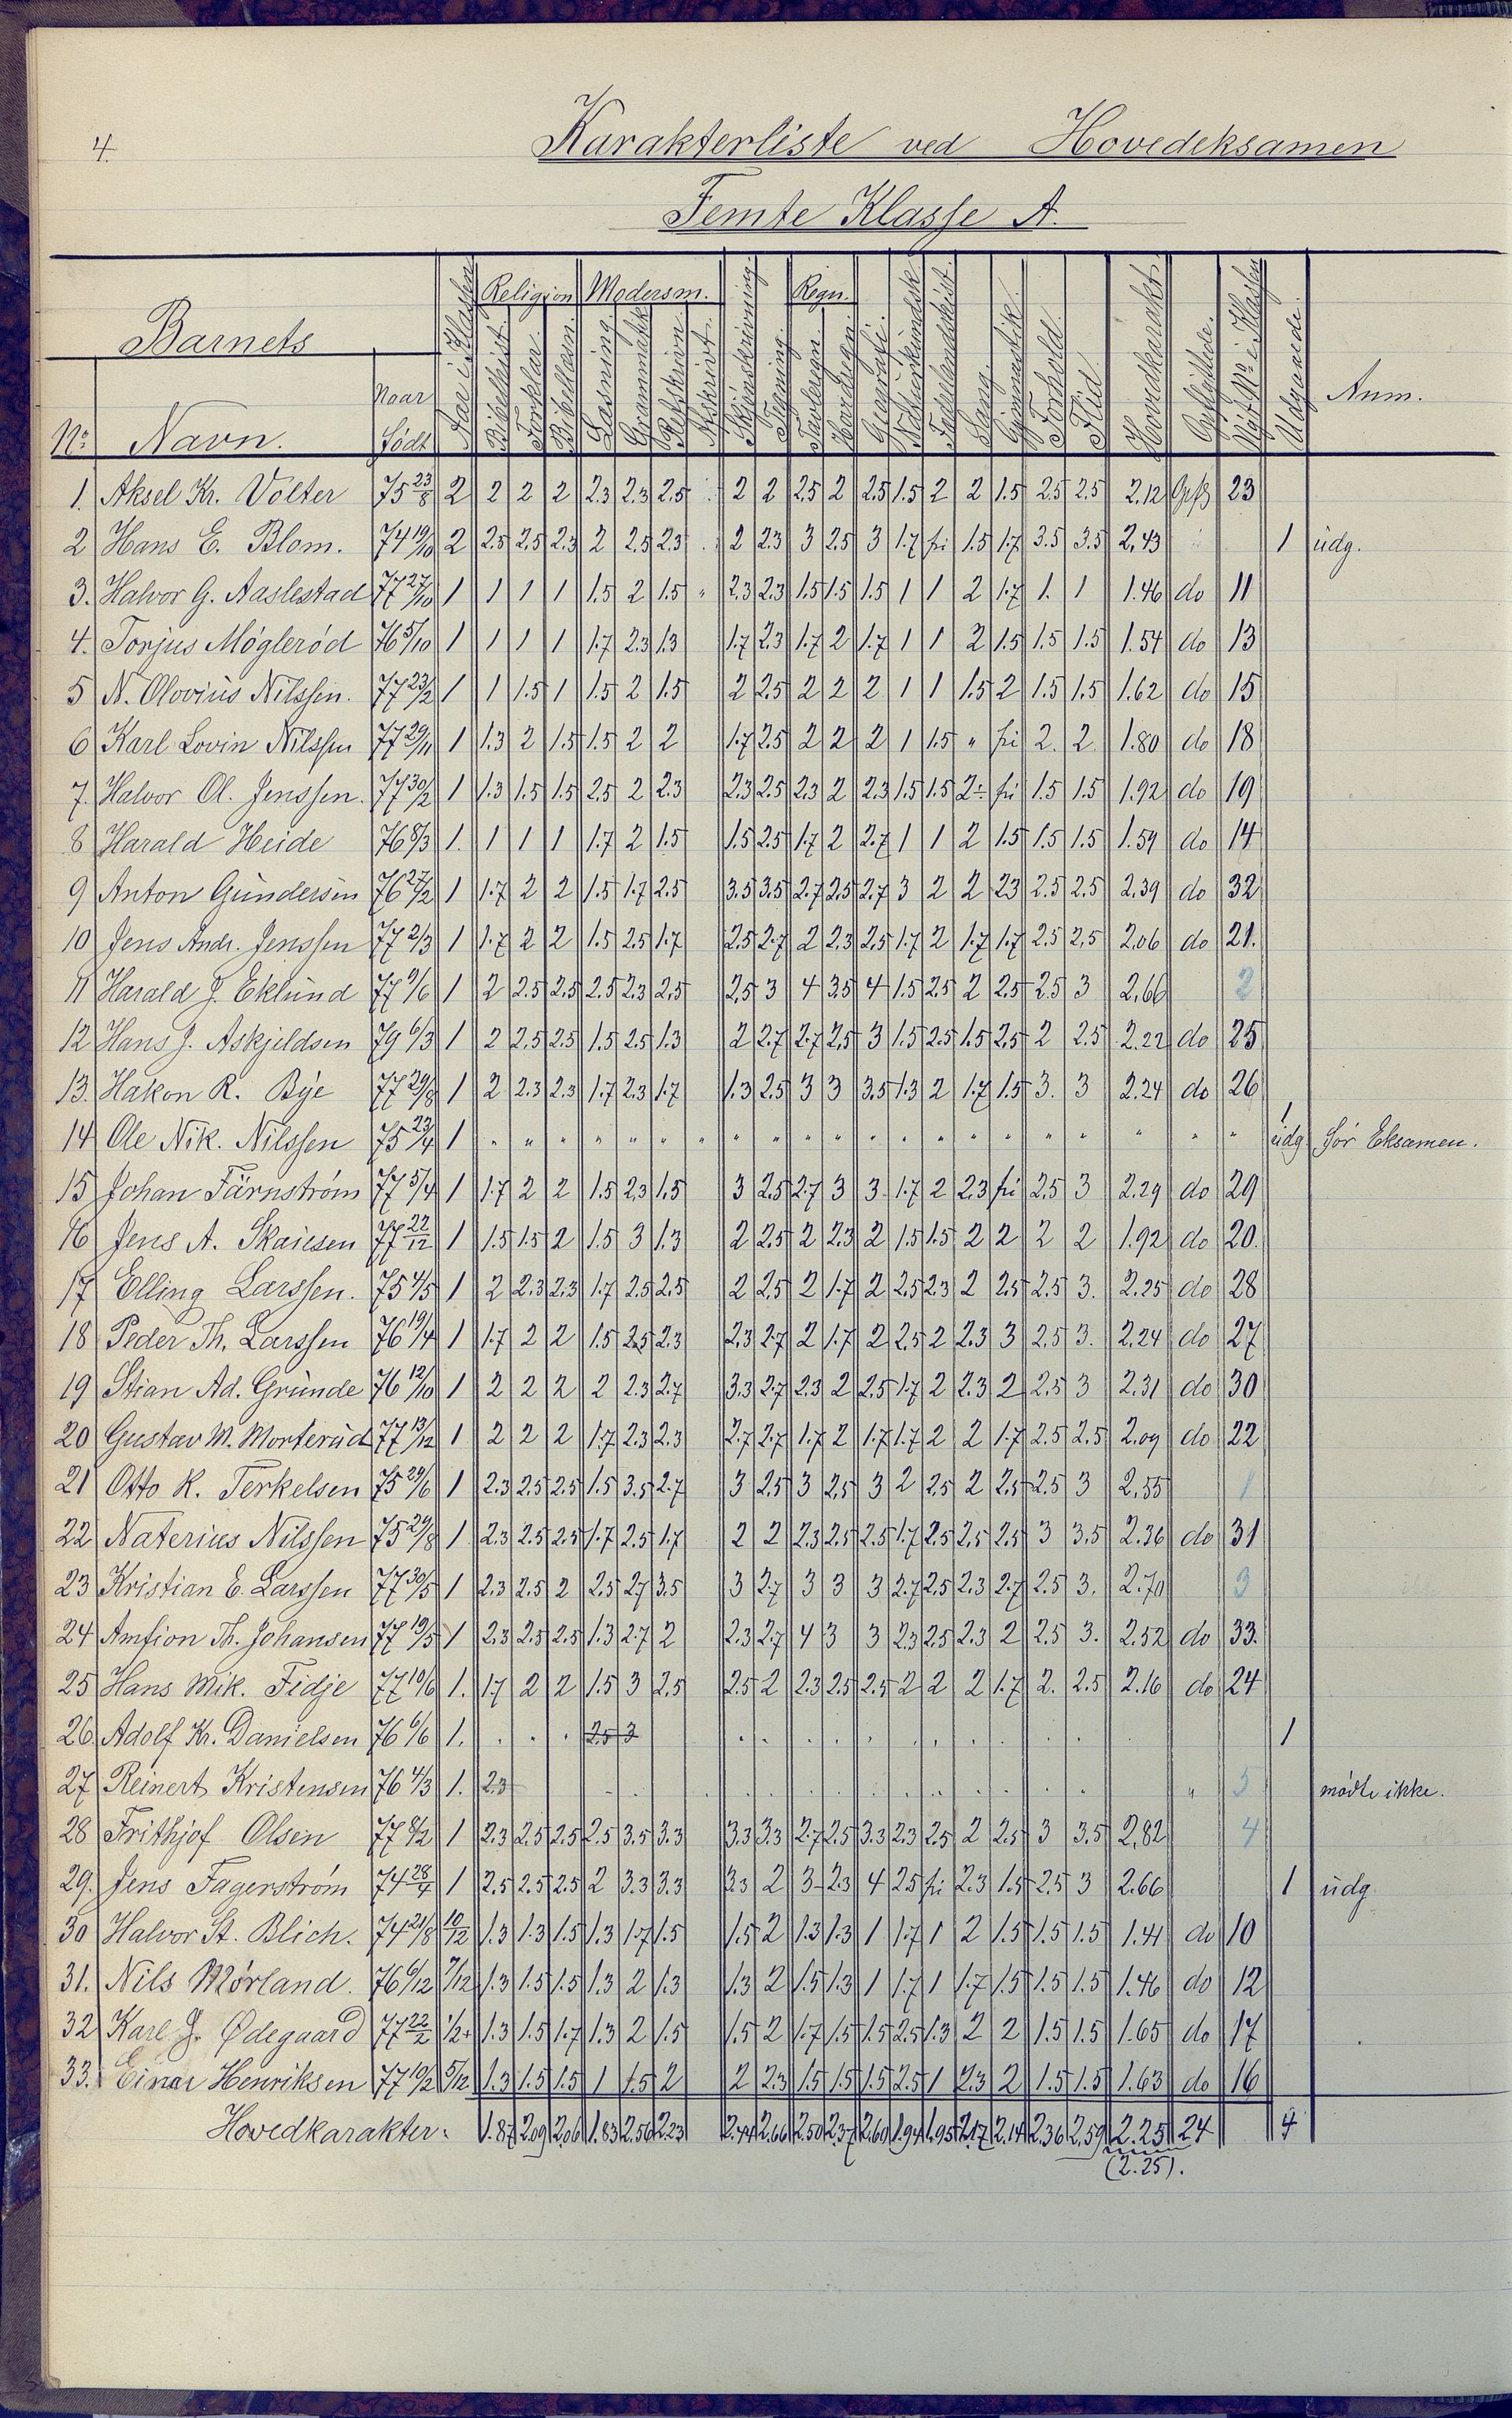 4.
Karakterliste ved Hovedeksamen
Femte Klasse A.
Barnets
Religion Modersm. Regn.
No Navn. Naar Født Aar i Klassen Bibelhist. Forklar. Bibellæsn. Læsning. Grammatik Retskrivn. Afskrivt. Skjønskrivning. Tegning. Tavleregn. Hovedregn. Geografi. Naturkundsk. Fædrelandshist. Sang. Gymnastik. Forhold. Flid. Hovedkarakt. Opflyttede. Udgaaede. Anm.
1. Aksel Kr. Volter 75 23/8 2 2 2 2 2.3 2.3 2.5 2 2 2.5 2 2.5 1.5 2 2 1.5 2.5 2.5 2.12 23
2 Hans E. Blom. 74 19/10 2 2.5 2.5 2.3 2 2.5 2.3 2 2.3 3 2.5 3 1.7 fri 1.5 1.7 3.5 3.5 2.43 1 udg.
3. Halvor G. Aaslestad 77 27/10 1 1 1 1 1.5 2 1.5 " 2.3 2.3 1.5 1.5 1.5 1 1 2 1.7 1. 1 1.46 do 11
4. Torjus Møglerød 76 5/10 1 1 1 1 1.7 2.3 1.3 1.7 2.3 1.7 2 1.7 1 1 2 1.5 1.5 1.5 1.54 do 13
5 N. Olovius Nilssen. 77 23/2 1 1 1.5 1 1.5 2 1.5 2 2.5 2 2 2 1 1 1.5 2 1.5 1.5 1.62 do 15
6 Karl Lovin Nilssen 77 29/11 1 1.3 2 1.5 1.5 2 2 1.7 2.5 2 2 2 1 1.5 " fri 2. 2. 1.80 do 18
7. Halvor Ol. Jenssen. 77 30/2 1 1.3 1.5 1.5 2.5 2 2.3 2.3 2.5 2.3 2 2.3 1.5 1.5 2÷ fri 1.5 1.5 1.92 do 19
8 Harald Heide 76 8/3 1. 1 1 1 1.7 2 1.5 1.5 2.5 1.7 2 2.7 1 1 2 1.5 1.5 1.5 1.59 do 14
9 Anton Gundersen 76 27/2 1 1.7 2 2 1.5 1.7 2.5 3.5 3.5 2.7 2.5 2.7 3 2 2 2.3 2.5 2.5 2.39 do 32
10 Jens Andr. Jenssen 77 2/3 1 1.7 2 2 1.5 2.5 1.7 2.5 2.7 2 2.3 2.5 1.7 2 1.7 1.7 2.5 2.5 2.06 do 21.
11 Harald J. Eklund 77 9/6 1 2 2.5 2.5 2.5 2.3 2.5 2.5 3 4 3.5 4 1.5 2.5 2 2.5 2.5 3 2.66 2
12 Hans J. Askjeldsen 79 6/3 1 2 2.5 2.5 1.5 2.5 1.3 2 2.7 2.7 2.5 3 1.5 2.5 1.5 2.5 2 2.5 2.22 do 25
13. Hakon R. Bye 77 29/8 1 2 2.3 2.3 1.7 2.3 1.7 1.3 2.5 3 3 3.5 1.3 2 1.7 1.5 3. 3 2.24 do 26
14 Ole Nik. Nilssen 75 23/4 1 " " " " " " " " " " " " " " " " " " " " " 1 udg. før Eksamen.
15 Johan Färnström 77 5/4 1 1.7 2 2 1.5 2.3 1.5 3 2.5 2.7 3 3. 1.7 2 2.3 fri 2.5 3 2.29 do 29
16 Jens A. Skaiesen 77 22/12 1 1.5 1.5 2 1.5 3 1.3 2 2.5 2 2.3 2 1.5 1.5 2 2 2 2 1.92 do 20.
17 Elling Larssen. 75 4/5 1 2 2.3 2.3 1.7 2.5 2.5 2 2.5 2 1.7 2 2.5 2.3 2 2.5 2.5 3. 2.25 do 28
18 Peder Th. Larssen 76 19/4 1 1.7 2 2 1.5 2.5 2.3 2.3 2.7 2 1.7 2 2.5 2 2.3 3 2.5 3. 2.24 do 27
19 Stian Ad. Grunde 76 12/10 1 2 2 2 2 2.3 2.7 3.3 2.7 2.3 2 2.5 1.7 2 2.3 2 2.5 3 2.31 do 30
20 Gustav M. Morterud 77 13/12 1 2 2 2 1.7 2.3 2.3 2.7 2.7 1.7 2 1.7 1.7 2 2 1.7 2.5 2.5 2.09 do 22
21 Otto K. Terkelsen 75 29/6 1 2.3 2.5 2.5 1.5 3.5 2.7 3 2.5 3 2.5 3 2 2.5 2 2.5 2.5 3 2.55 1
22 Naterius Nilssen 75 29/8 1 2.3 2.5 2.5 1.7 2.5 1.7 2 2 2.3 2.5 2.5 1.7 2.5 2.5 2.5 3 3.5 2.36 do 31
23 Kristian E. Larssen 77 30/5 1 2.3 2.5 2 2.5 2.7 3.5 3 2.7 3 3 3 2.7 2.5 2.3 2.7 2.5 3. 2.70 3
24 Amfion Th. Johansen 77 19/5 1 2.3 2.5 2.5 1.3 2.7 2 2.3 2.7 4 3 3 2.3 2.5 2.3 2 2.5 3. 2.52 do 33.
25 Hans Mik. Fidje 77 10/6 1. 1.7 2 2 1.5 3 2.5 2.5 2 2.3 2.5 2.5 2 2 2 1.7 2. 2.5 2.16 do 24
26 Adolf Kr. Danielsen 76 6/6 1. 2.5 3 1
27 Reinert Kristensen 76 4/3 1. 2.3 " 5 mødte ikke.
28 Frithjof Olsen 77 8/2 1 2.3 2.5 2.5 2.5 3.5 3.3 3.3 3.3 2.7 2.5 3.3 2.3 2.5 2 2.5 3 3.5 2.82 4
29. Jens Fagerstrøm 74 28/4 1 2.5 2.5 2.5 2 3.3 3.3 3.3 2 3 2.3 4 2.5 fri 2.3 1.5 2.5 3 2.66 1 udg.
30 Halvor St. Blich. 74 21/8 10/12 1.3 1.3 1.5 1.3 1.7 1.5 1.5 2 1.3 1.3 1 1.7 1 2 1.5 1.5 1.5 1.41 do 10
31. Nils Mørland. 76 6/12 7/12 1.3 1.5 1.5 1.3 2 1.3 1.3 2 1.5 1.3 1 1.7 1 1.7 1.5 1.5 1.5 1.46 do 12
32 Karl J. Ødegaard 77 22/2 1/2+ 1.3 1.5 1.7 1.3 2 1.5 1.5 2 1.7 1.5 1.5 2.5 1.3 2 2 1.5 1.5 1.65 do 17
33. Einar Henriksen 77 10/2 5/12 1.3 1.5 1.5 1 1.5 2 2 2.3 1.5 1.5 1.5 2.5 1 2.3 2 1.5 1.5 1.63 do 16
Hovedkarakter. 1.87 2.09 2.06 1.83 2.56 2.23 2.44 2.66 2.50 2.37 2.60 1.94 1.95 2.17 2.14 2.36 2.59 2.25 24 4
(2.25).